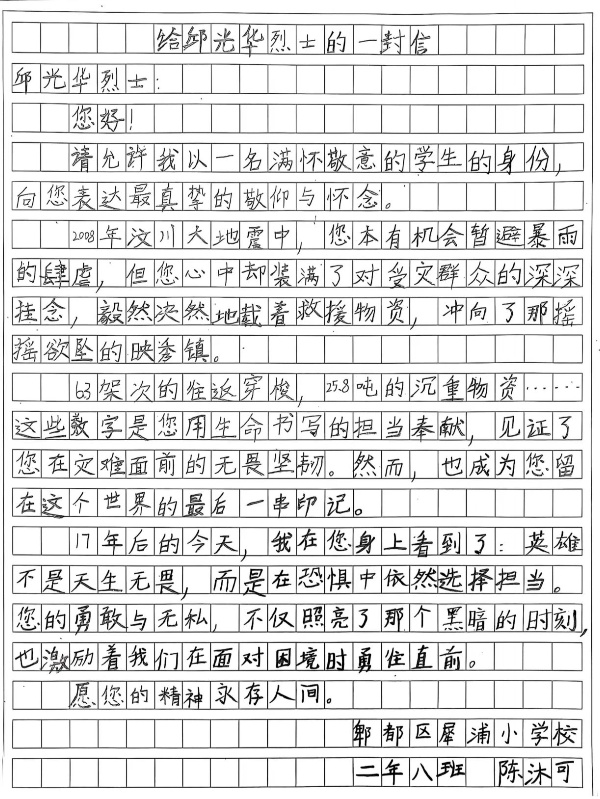 给邱光华烈士的一封信
邱光华烈士:
您好!
请允许我以一名满怀敬意的学生的身份,
向您表达最真挚的敬仰与怀念。
2008年汶川大地震中,您本有机会暂避暴雨
的肆虐,但您心中却装满了对受灾群众的深深
挂念,毅然决然地载着救援物资,冲向了那摇
摇欲坠的映秀镇。
63架次的往返穿梭,25.8吨的沉重物资……
这些数字是您用生命书写的担当奉献,见证了
您在灾难面前的无畏坚韧。然而,也成为您留
在这个世界的最后一串印记。
17年后的今天,我在您身上看到了:英雄
不是天生无畏,而是在恐惧中依然选择担当。
您的勇敢与无私,不仅照亮了那个黑暗的时刻,
也激励着我们在面对困境时勇往直前。
愿您的精神永存人间。
郫都区犀浦小学校
二年八班 陈沐可